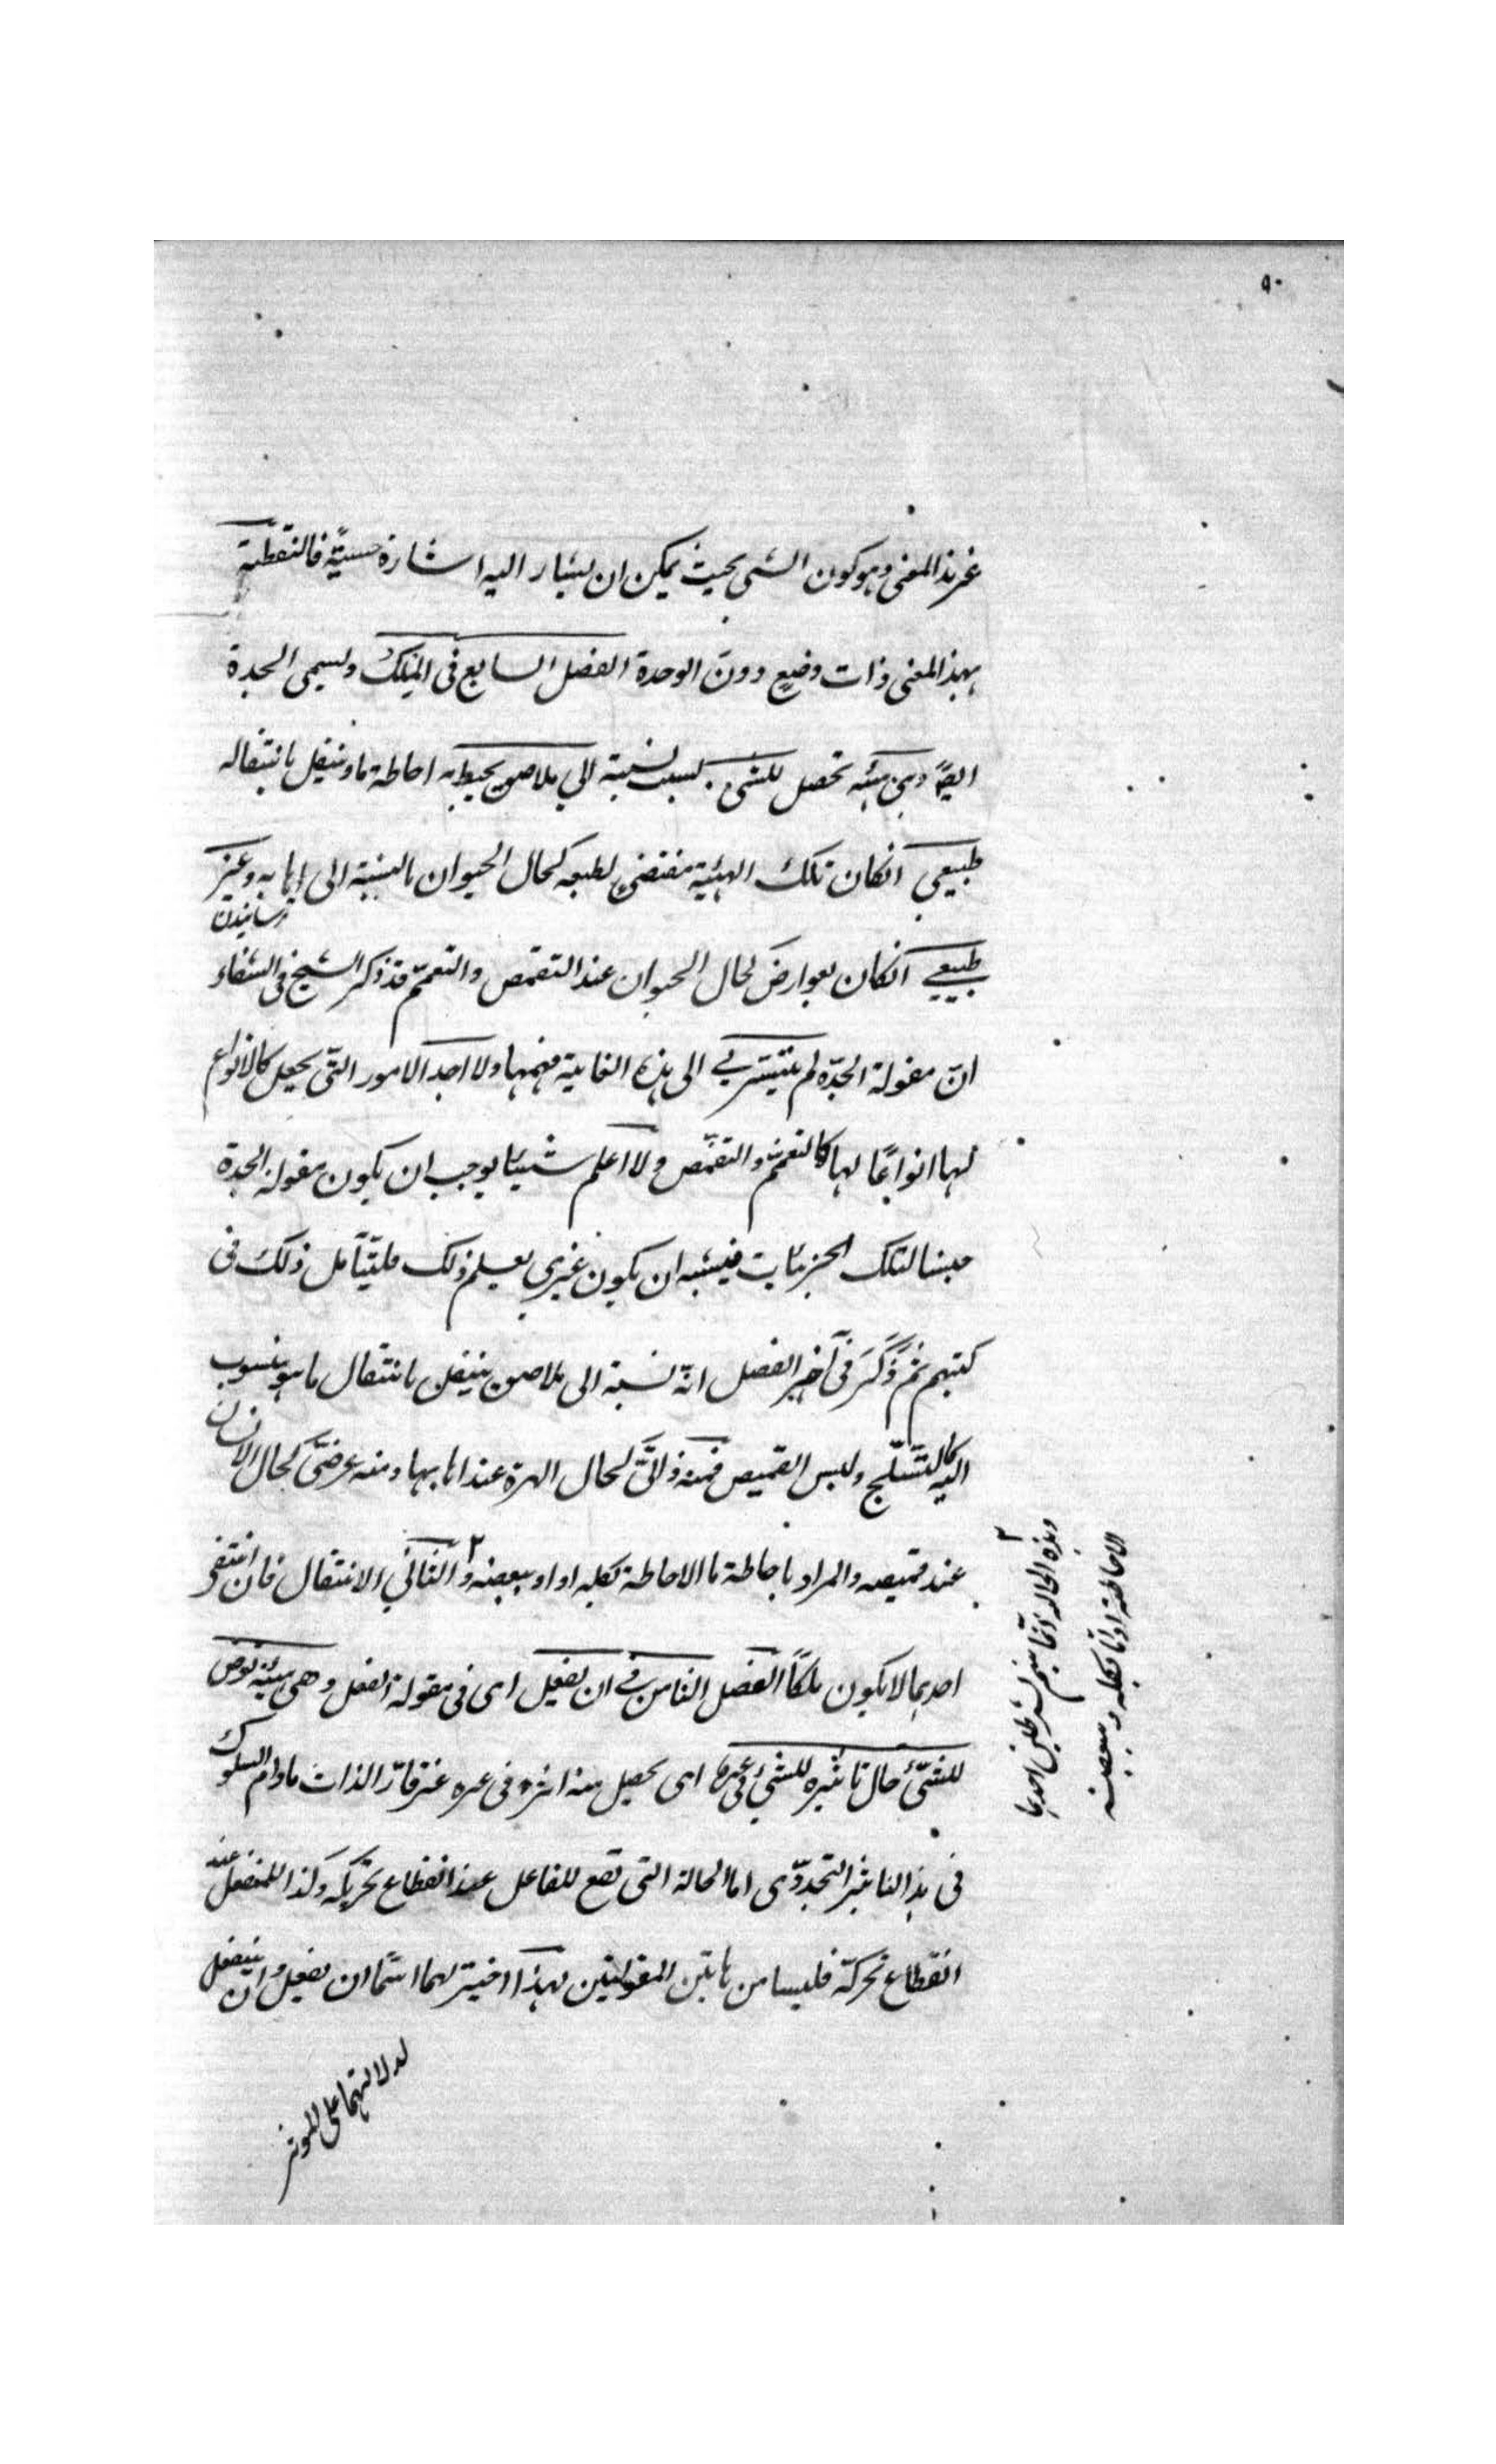 ٩٠
غير هذا المعنى وهو كون الشئ بحيث يمكن ان يشار اليه اشارة حسية فالنقطة
بهذا المعنى ذات وضع دون الوحدة الفصل السابع فى الملك ويسمى الجدة
ايضا وهى هيئة تحصل للشئ بسبب نسبته الى ملاصق يحيط به احاطة ما وينتقل بانتقاله
طبيعى انكان تلك الهيئة مقتضى لطبعه كحال الحيوان بالنسبة الى اهابه وغير
طبيعى انكان بعوارض كحال الحيوان عند التقمص والتعمم قد ذكر الشيخ فى الشفاء
ان مقولة الجدة لم يتيسر لى الى هذه الغاية فهمها ولا اجد الامور التى يجعل كالانواع
لها انواعا لها كالتعمم والتقمص ولا اعلم شيئا يوجب ان يكون مقولة الجدة
جنسا لتلك الجزئيات فيشبه ان يكون غيرى يعلم ذلك فليتأمل ذلك فى
كتبهم ثم ذكر فى آخر الفصل انه نسبة الى ملاصق ينتقل بانتقال ما هو منسوب
اليه كالتسلح ولبس القميص فمنه ذاتى كحال الهرة عند اهابها ومنه عرضى كحال الانسان
عند قميصه والمراد باحاطة ما الاحاطة بكله او ببعضه ٢ والثانى الانتقال فان انتفى
احدهما لا يكون ملكا الفصل الثامن فى ان يفعل اى فى مقولة الفعل وهى هيئة تعرض
للشئ حال تاثيره للشئ فى غيره اى يحصل منه اثره فى غيره غير قار الذات مادام السلوك
فى هذا التاثير التجددى اما الحالة التى تقع للفاعل عند انقطاع تحريكه وكذا للمنفعل عند
انقطاع تحركه فليسا من هاتين المقولتين لهذا اختير لهما اسما ان يفعل وان ينفعل
لدلالتهما على المؤثر
٢
وهذه الحالة انما يتم بشرطين احدهما
الاحاطة اما بكله و ببعضه